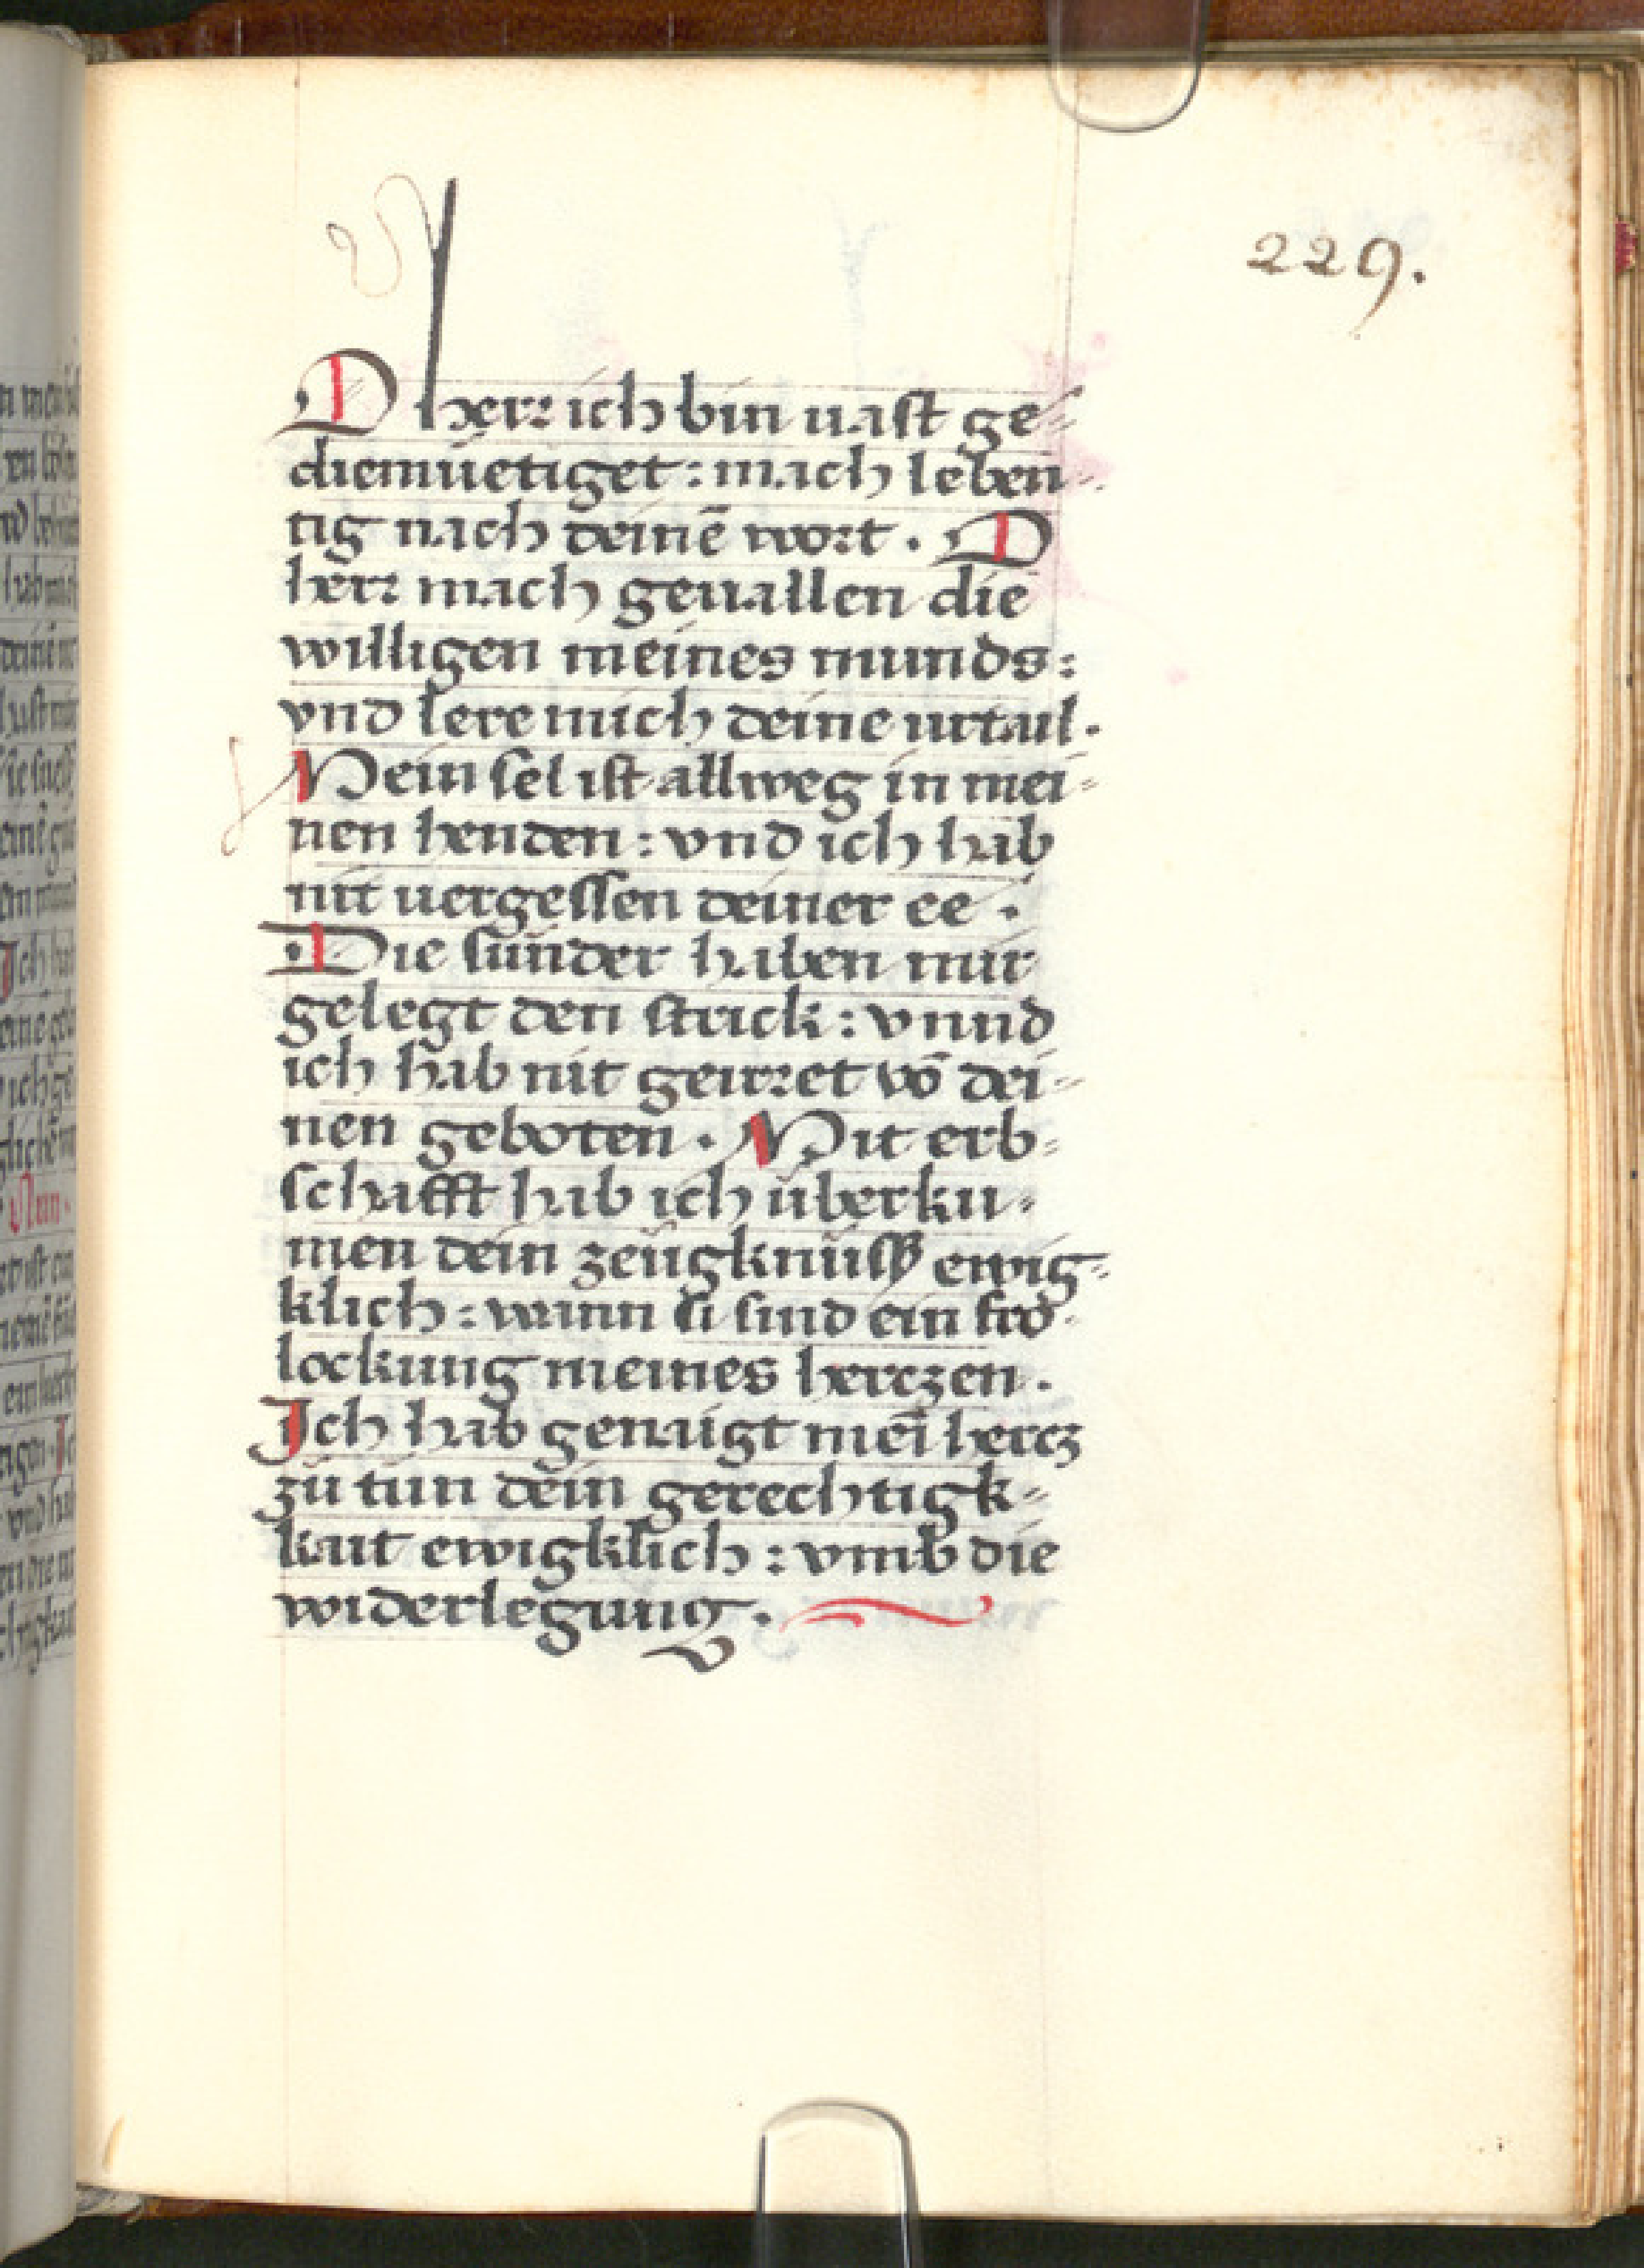 229.
O herr ich bin uast ge-
diemuetiget : mach leben-
tig nach deinē wort . O
herr mach geuallen die
willigen meines munds :
vnd lere mich deine urtail .
Mein sel ist allweg in mei-
nen henden : vnd ich hab
nit uergessen deiner ee .
Die sunder haben mir
gelegt den strick : vnnd
ich hab nit geirret vō dei-
nen geboten . Mit erb-
schafft hab ich überku-
men dein zeügknüss ewig-
klich : wann si sind ein fro-
lockung meines herczen .
Ich hab genaigt mei͂ hercz
zů tůn dein gerechtigk-
kait ewigklich : vmb die
widerlegung .